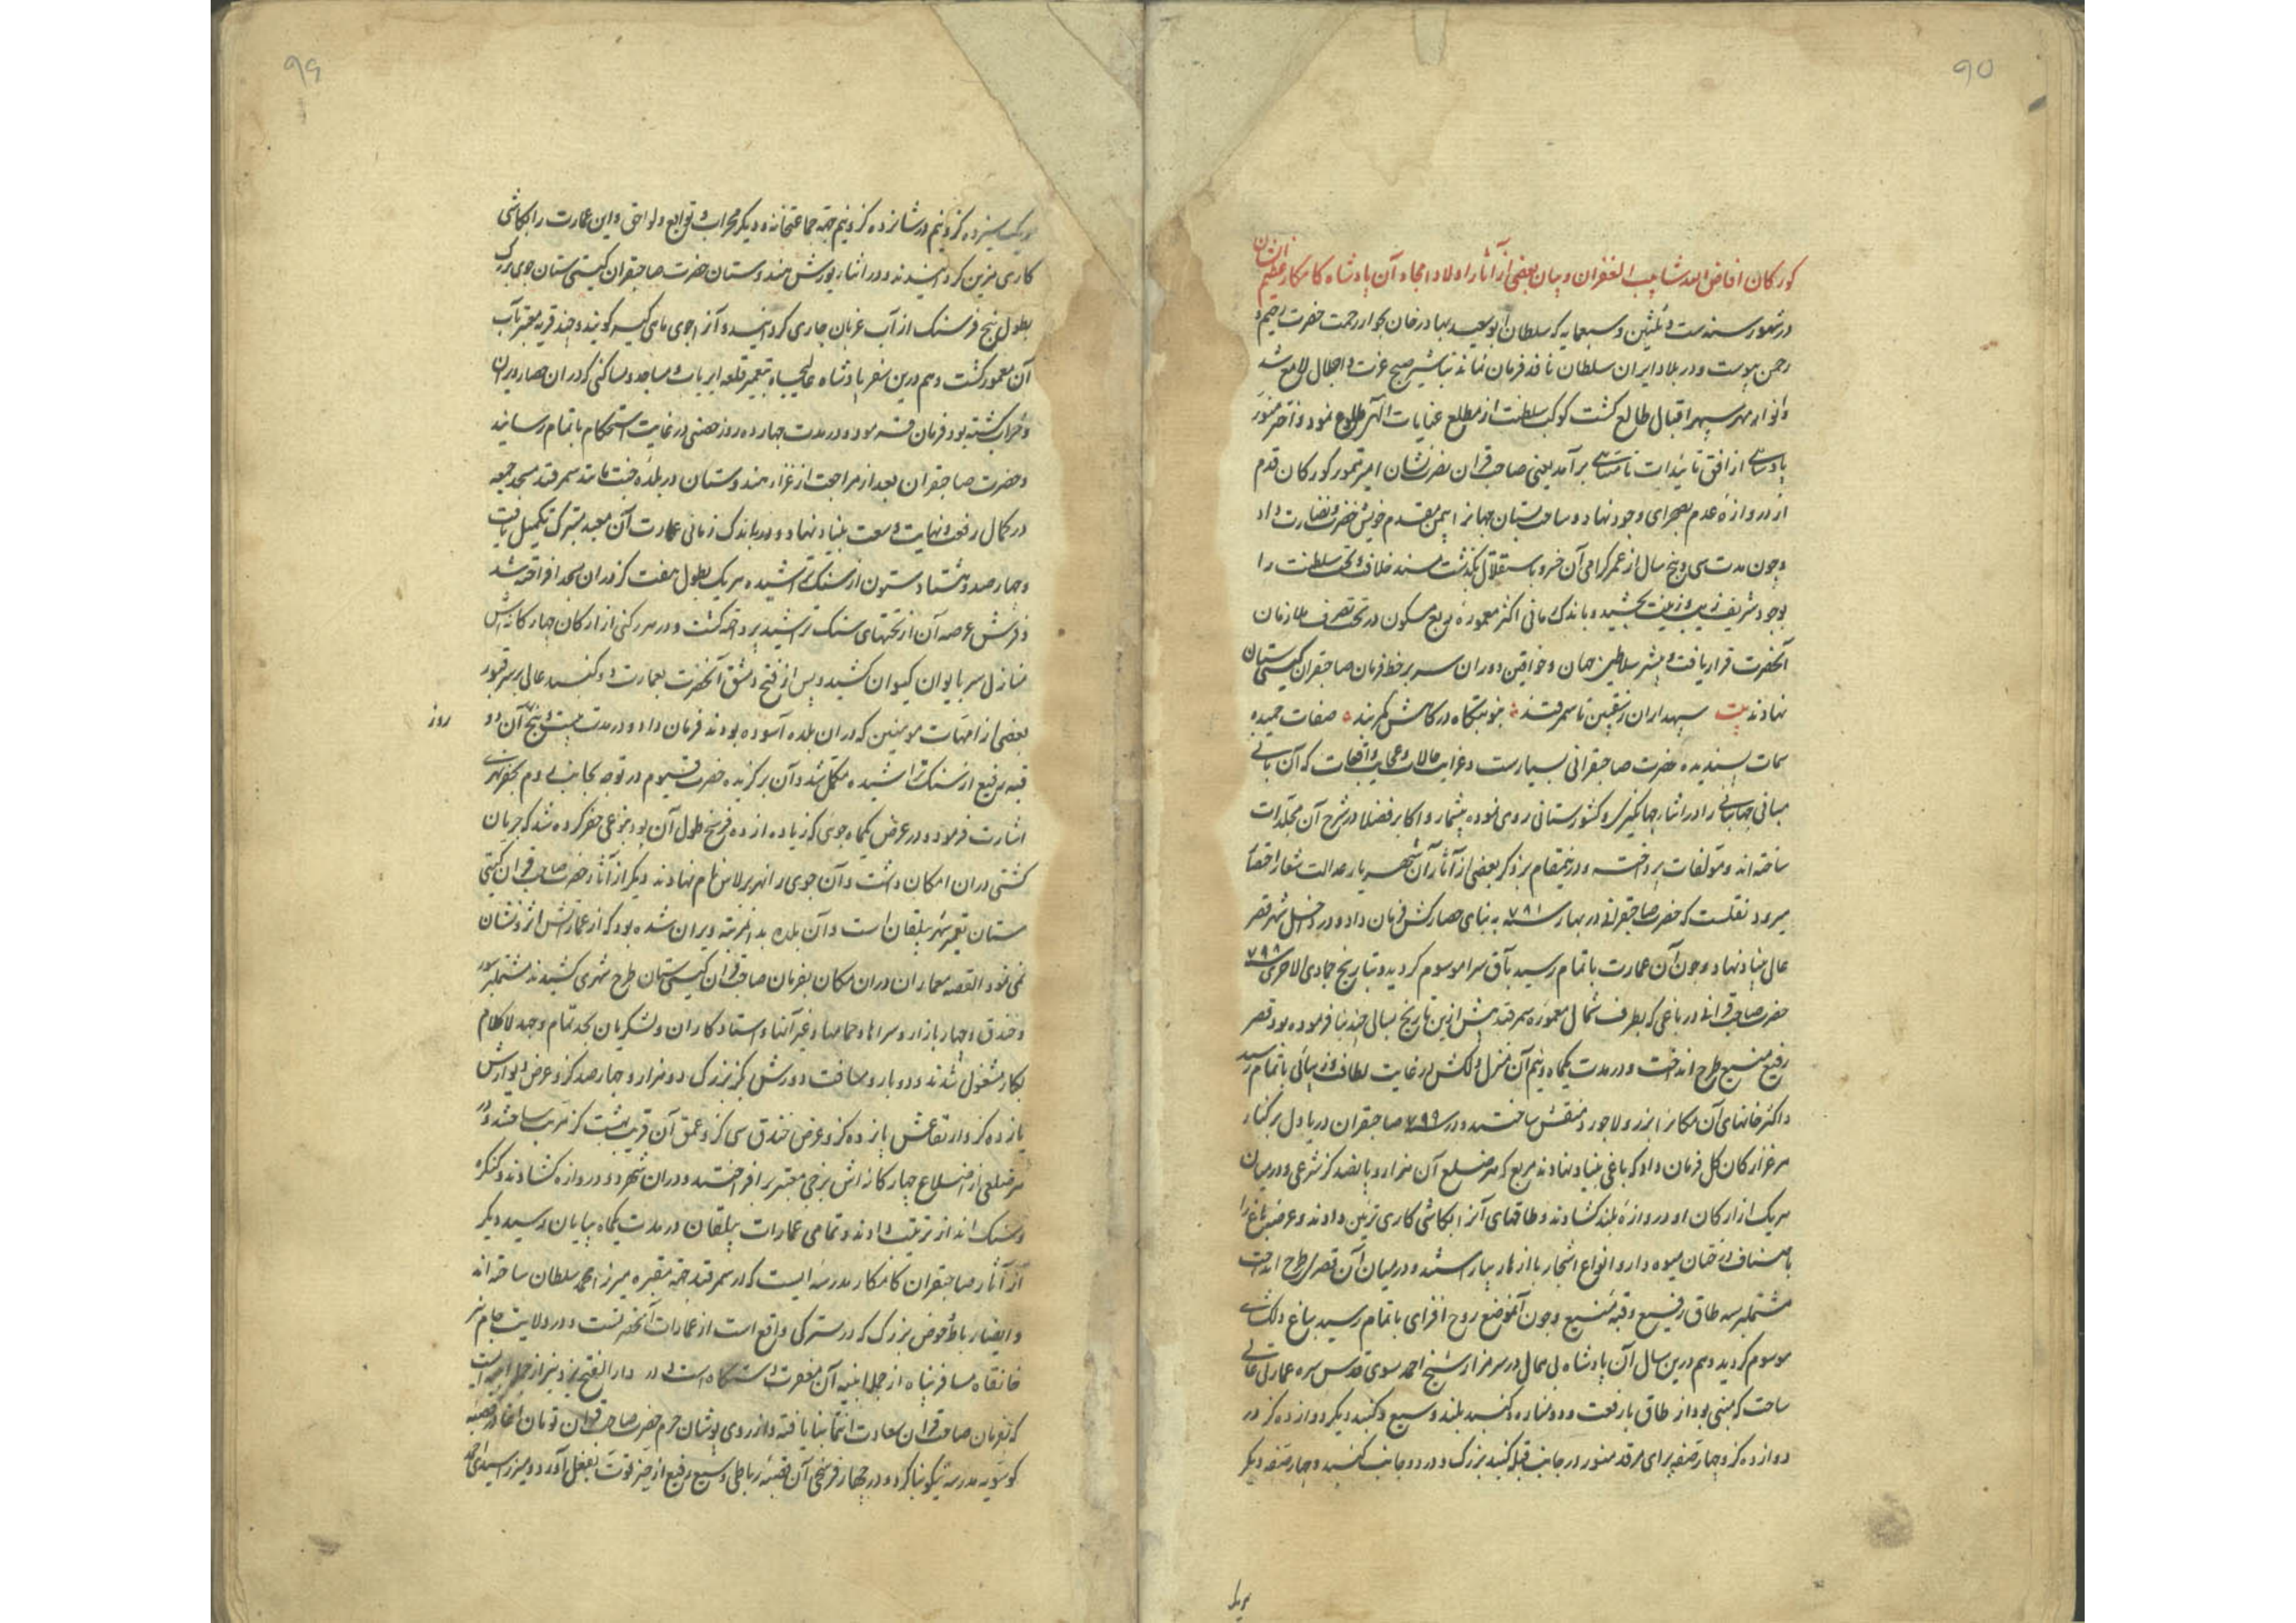 ۹۵
کورکان افاض الله شآبیب الغفران و بیان بعضی از آثار اولاد امجاد آن پادشاه کامکار عظیم الشان
در شهور سنه ست و ثلثین و سبعمایه که سلطان ابو سعید بهادر خان بجوار رحمت حضرت رحیم و
رحمن پیوست و در بلاد ایران سلطان نافذ فرمان نماند تباشیر صبح عزت و اجلال لامع شد
و انوار مهر سپهر اقبال طالع کشت کوکب سلطنت از مطلع عنایات الهی طلوع نمود و اختر منور
پادشاهی از افق تائیدات نامتناهی برآمد یعنی صاحب قران نصرت نشان امیر تیمور کورکان قدم
از دروازه عدم بصحرای وجود نهاد و ساحت بستان جهانرا بیمن مقدم خویش خضرت و نضارت داد
و چون مدت سی و پنج سال از عمر کرامی آن خسرو باستقلال بکذشت مسند خلافت و تخت سلطنت را
بوجود شریف زیب و زینت بخشید و باندک زمانی اکثر معموره ربع مسکون در تحت تصرف ملازمان
آنحضرت قرار یافت و بیشتر سلاطین جهان و خواقین دوران سر بر خط فرمان صاحبقران کیتی ستان
نهادند بیت سپهدار ایران زمین تا سمرقند جنوبتکاه درکاهش کمربند صفات حمیده
سمات پسندیده حضرت صاحبقرانی بسیارست و غرایب حالات و عجایب واقعات که آن بانی
مبانی جهانبانی را در اثناء جهانکیری و کشورستانی روی نموده بیشمار و اکابر فضلا در شرح آن مجلدات
ساخته اند و مولفات پرداخته و درینمقام بر ذکر بعضی از آثار آن شهریار عدالت شعار اختصار
میرود نقلست که حضرت صاحبقرانی در بهار سنه ۷۸۱ به بنای حصار کش فرمان داد و در داخل شهر قصر
عالی بنیاد نهاد و چون آن عمارت باتمام رسید بآق سرا موسوم کردید و بتاریخ جمادی الاخری سنه ۷۹۸
حضرت صاحب قرانی در باغی که بطرف شمال معموره سمرقند پیش ازین تاریخ بسالی چند بنا فرموده بود قصر
رفیع منیع طرح انداخت و در مدت یکماه و نیم آن منزل دلکش در غایت لطافت و زیبائی باتمام رسید
و اکثر خانهای آن مکانرا بزر و لاجورد منقش ساختند و در سنه ۷۹۹ صاحبقران دریا دل بر کنار
مرغزار کان کل فرمان داد که باغی بنیاد نهادند مربع که هر ضلع آن هزار و پانصد کز شرعی و در میان
هر یک از ارکان او دروازه بلند کشادند و طاقهای آنرا بکاشی کاری تزیین دادند و عرصه باغ را
باصناف درختان میوه دار و انواع اشجار با ازهار بیاراستند و در میان آن قصری طرح انداخت
مشتمل بر سه طاق رفیع و قبه منیع و چون آنموضع روح افزای باتمام رسید بباغ دلکشای
موسوم کردید و هم درین سال آن پادشاه بی همال در سر مزار شیخ احمد یسوی قدس سره عمارتی عالی
ساخت که مبنی بود از طاق بارفعت و دو مناره و کنبد بلند وسیع و کنبد دیکر دوازده کز در
دوازده کز و چهار صفه برای مرقد منور در جانب قبله کنبد بزرک و در دو جانب کنبد و چهار صفه دیکر
هر یک
۹۶
هر یک سیزده کز و نیم در شانزده کز و نیم جهة جماعتخانه و دیکر محراب و توابع و لواحق و این عمارت را بکاشی
کاری مزین کردانیدند و در اثناء یورش هندوستان حضرت صاحبقران کیتی ستان جوی بزرک
بطول پنج فرسنک از آب غربان جاری کردانید و آنرا جوی ماهی کیر کویند و چند قریه معتبر بآب
آن معمور کشت و هم درین سفر پادشاه عالیجاه بتعمیر قلعه ایریاب و مساجد و مساکنی که در ان حصار ویران
و خراب کشته بود فرمان فرمود و در مدت چهارده روز حصنی در غایت استحکام باتمام رسانید
و حضرت صاحبقران بعد از مراجعت از غزاء هندوستان در بلده جنت مانند سمرقند مسجد جمعه
در کمال رفعت و نهایت وسعت بنیاد نهاد و در باندک زمانی عمارت آن معبد متبرک تکمیل یافت
و چهار صد و هشتاد ستون از سنک تراشیده هر یک بطول هفت کز در ان مسجد افراخته شد
و فرش عرصه آن از تختهای سنک تراشیده پرداخته کشت و در هر رکنی از ارکان چهارکانه اش
منازل سر بایوان کیوان کشید و پس از فتح دمشق آنحضرت بعمارت دو کنبد عالی بر سر قبور
بعضی از امهات مومنین که در ان بلده آسوده بودند فرمان داد و در مدت بیست و پنج آن دو
روز
قبه رفیع از سنک تراشیده مکمل شد و آن برکزیده حضرت قیوم در توجه بجانب روم بحفر نهری
اشارت فرمود و در عرض یکماه جوی که زیاده از ده فرسخ طول آن بود بنوعی حفر کرده شد که جریان
کشتی در ان امکان داشت و آن جوی را نهر برلاس نام نهادند دیکر از آثار حضرت صاحب قران کیتی
ستان تعمیر شهر بیلقان است و آن بلده بد انمرتبه ویران شده بود که از عمارتش اثر و نشان
نمی نمود القصه معماران در ان مکان بفرمان صاحب قران کیتی ستان طرح شهری کشیدند مشتمل بر سور
و خندق و چهار بازار و سراها و حمامها و غیر آنها و استادکاران و لشکریان بجد تمام و جهد لاکلام
بکار مشغول شدند و دو بارو مسافت دورش بکز بزرک دو هزار و چهار صد کز و عرض دیوارش
یازده کز و ارتفاعش پانزده کز و عرض خندق سی کز و عمق آن قریب بیست کز مرتب ساختند و در
هر ضلعی از اضلاع چهارکانه اش برجی معتبر برافراختند و در ان شهر دو دروازه کشادند و کنکره
و سنک انداز ترتیب دادند و تمامی عمارات بیلقان در مدت یکماه بپایان رسید دیکر
از آثار صاحبقران کامکار مدرسه ایست که در سمرقند جهة مقبره میرزا محمد سلطان ساخته اند
و ایضا رباط حوض بزرک که در سترکی واقع است از عمارات آنحضرتست و در ولایت جام نیز
خانقاه مسافر پناه از جمله ابنیه آن مغفرت دستکاه است و در دار الفتح یزد نیز از جمله ابنیه ایست
که بفرمان صاحب قران سعادت انتما بنا یافته و از روی پوشان حرم حضرت صاحب قران تومان آغا در قصبه
کوسویه مدرسه نیکو بنا کرد و در چهار فرسخی آن قصبه رباطی وسیع رفیع از حیز قوت بفعل آورد و میرزا سیدی احمد